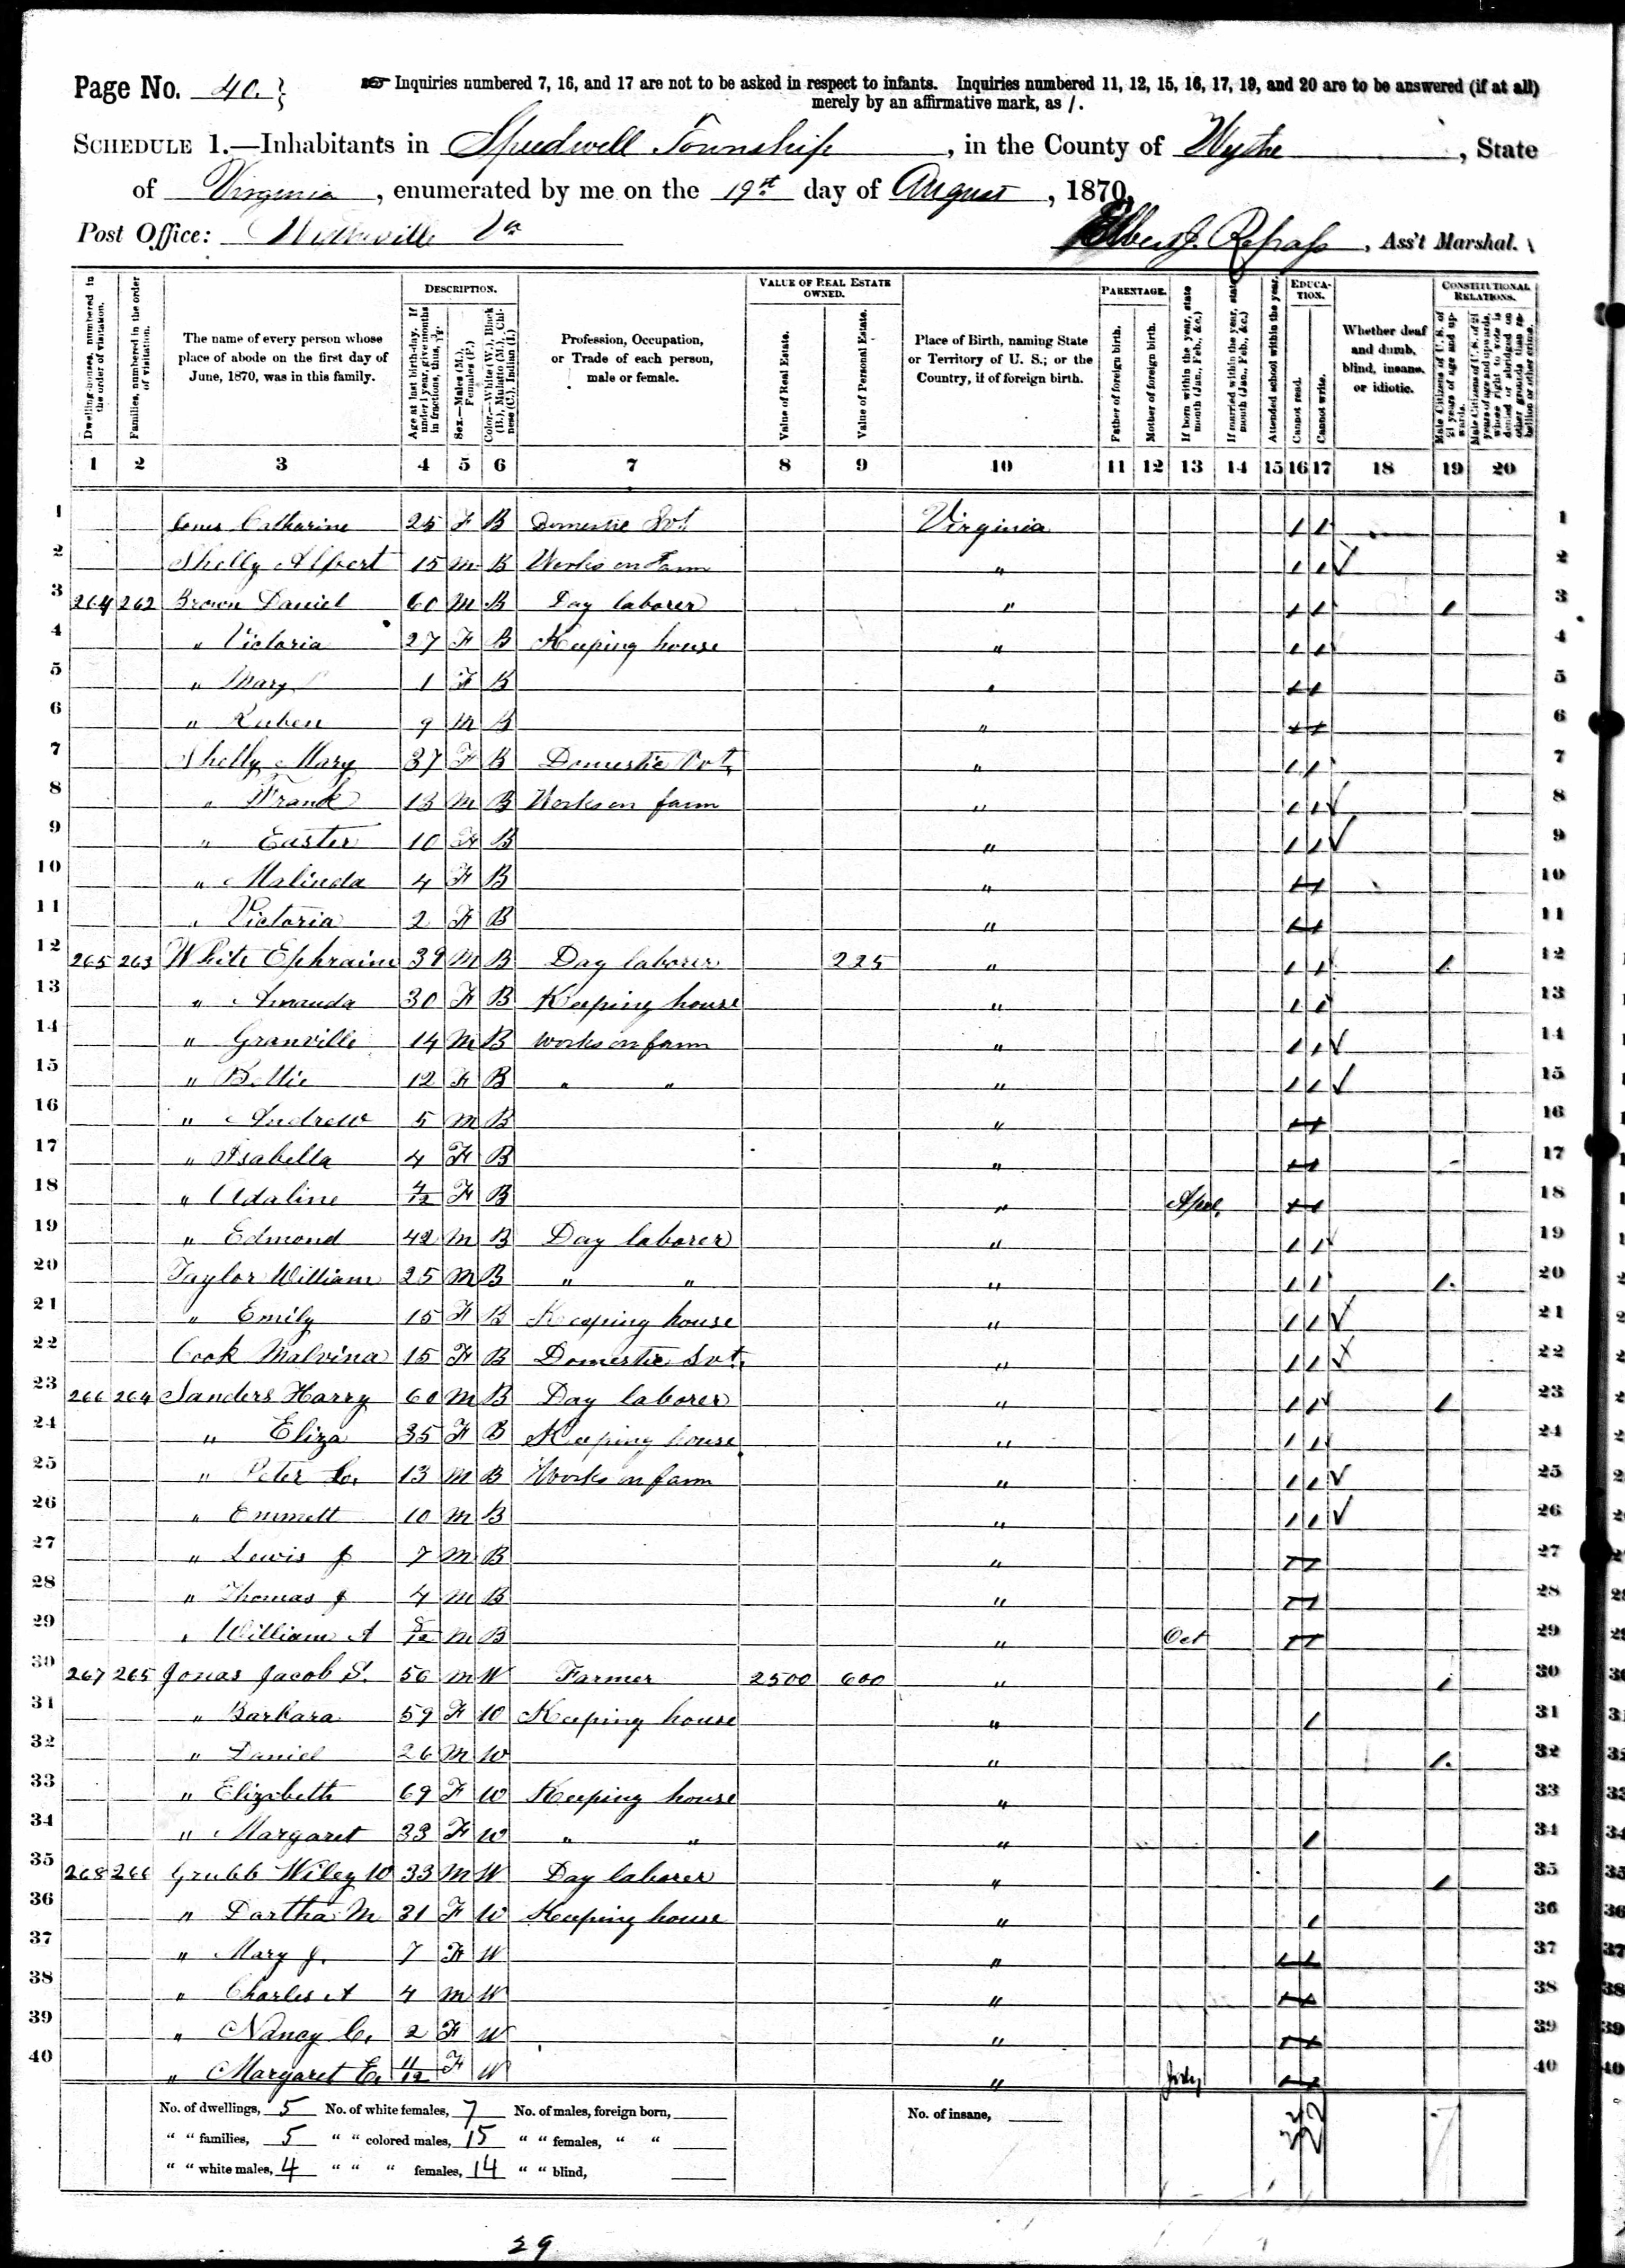 Page No. 40. Inquiries numbered 7, 16, and 17 are not to be asked in respect to infants. Inquiries numbered 11, 12, 15, 16, 17, 19, and 20 are to be answered (if at all)
merely by an affirmative mark, as /.
SCHEDULE 1.—Inhabitants in Speedwell Township, in the County of Wythe, State
of Virginia, enumerated by me on the 19th day of August, 1870.
Post Office: Wytheville Va
Repass, Ass't Marshal.
DESCRIPTION. VALUE OF REAL ESTATE OWNED. PARENTAGE. EDUCATION. CONSTITUTIONAL RELATIONS.
Dwelling-houses, numbered in the order of visitation.
Families, numbered in the order of visitation.
The name of every person whose place of abode on the first day of June, 1870, was in this family.
Age at last birth-day. If under 1 year, give months in fractions, thus, 3/12.
Sex.—Males (M.), Females (F.)
Color.—White (W.), Black (B.), Mulatto (M.), Chinese (C.), Indian (I.)
Profession, Occupation, or Trade of each person, male or female.
Value of Real Estate.
Value of Personal Estate.
Place of Birth, naming State or Territory of U. S.; or the Country, if of foreign birth.
Father of foreign birth.
Mother of foreign birth.
If born within the year, state month (Jan., Feb., &c.)
If married within the year, state month (Jan., Feb., &c.)
Attended school within the year.
Cannot read.
Cannot write.
Whether deaf and dumb, blind, insane, or idiotic.
Male Citizens of U. S. of 21 years of age and upwards.
Male Citizens of U. S. of 21 years of age and upwards, whose right to vote is denied or abridged on other grounds than rebellion or other crime.
1 2 3 4 5 6 7 8 9 10 11 12 13 14 15 16 17 18 19 20
1 Catharine 25 F B Domestic Svt Virginia / / 1
2 Shelly Albert 15 M B Works on Farm " / / ✓ 2
3 264 262 Brown Daniel 60 M B Day laborer " / / / 3
4 " Victoria 27 F B Keeping house " / / 4
5 " Mary 1 F B " 5
6 " Ruben 9 M B " 6
7 Shelly Mary 37 F B Domestic Svt. " / / 7
8 " Frank 13 M B Works on farm " / / ✓ 8
9 " Easter 10 F B " / / ✓ 9
10 " Malinda 4 F B " 10
11 " Victoria 2 F B " 11
12 265 263 White Ephraim 39 M B Day laborer 225 " / / / 12
13 " Amanda 30 F B Keeping house " / / 13
14 " Granville 14 M B Works on farm " / / ✓ 14
15 " 12 F B " " " / / ✓ 15
16 " Andrew 5 M B " 16
17 " Isabella 4 F B " 17
18 " Adaline 4/12 F B " Apel. 18
19 " Edmond 42 M B Day laborer " / / 19
20 Taylor William 25 M B " " " / / / 20
21 " Emily 15 F B Keeping house " / / ✓ 21
22 Cook Malvina 15 F B Domestic Svt. " / / ✓ 22
23 266 264 Sanders Harry 60 M B Day laborer " / / / 23
24 " Eliza 35 F B Keeping house " / / 24
25 " Peter C. 13 M B Works on farm " / / ✓ 25
26 " Emmett 10 M B " / / ✓ 26
27 " Lewis J 7 M B " 27
28 " Thomas J 4 M B " 28
29 " William A M B " Oct 29
30 267 265 Jonas Jacob S. 56 M W Farmer 2500 600 " / 30
31 " Barbara 59 F W Keeping house " / 31
32 " Daniel 26 M W " / 32
33 " Elizabeth 69 F W Keeping house " 33
34 " Margaret 33 F W " " " / 34
35 268 266 Grubb Wiley W 33 M W Day laborer " / 35
36 " Dartha M 31 F W Keeping house " / 36
37 " Mary J. 7 F W " 37
38 " Charles A 4 M W " 38
39 " Nancy C. 2 F W " 39
40 " Margaret E. 11/12 F W " July 40
No. of dwellings, 5 No. of white females, 7 No. of males, foreign born, No. of insane,
" " families, 5 " " colored males, 15 " " females, " "
" " white males, 4 " " " females, 14 " " blind,
29